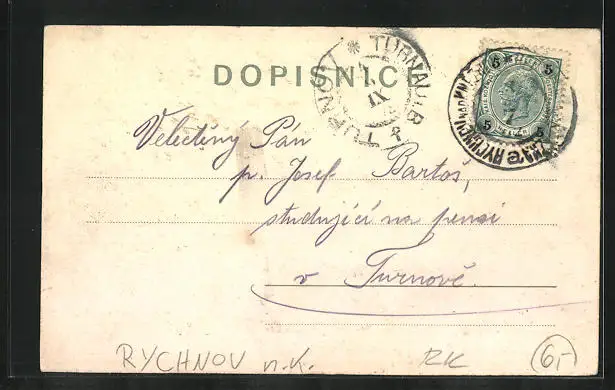 DOPISNICE
TURNAU 1.B.
TURNOV
IX
5 5
5 5
RYCHNOV
Velectěný Pán
p. Josef Bartoš,
studující na pensi
v Turnově.
RYCHNOV n.K. RK 6,-